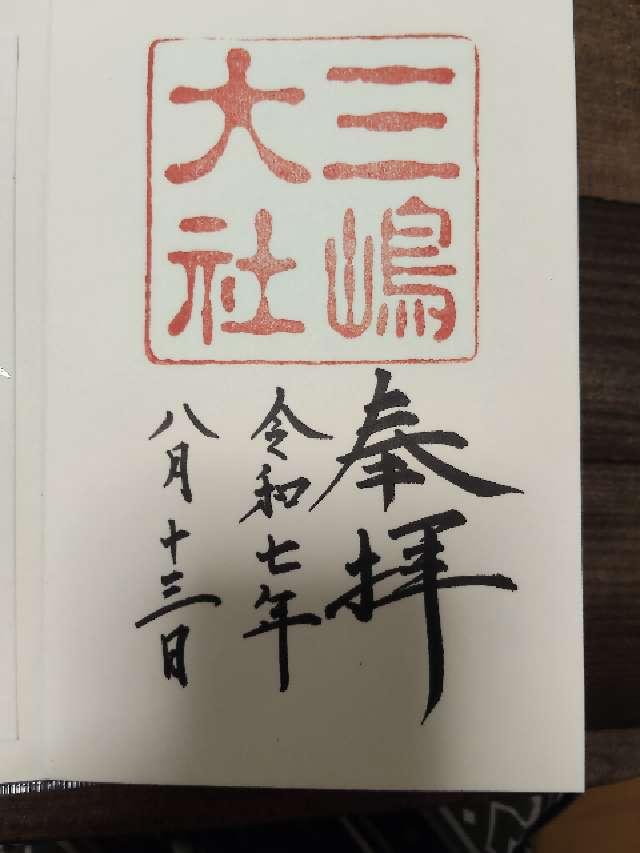 三嶋
大社
奉拝
令和七年
八月十三日